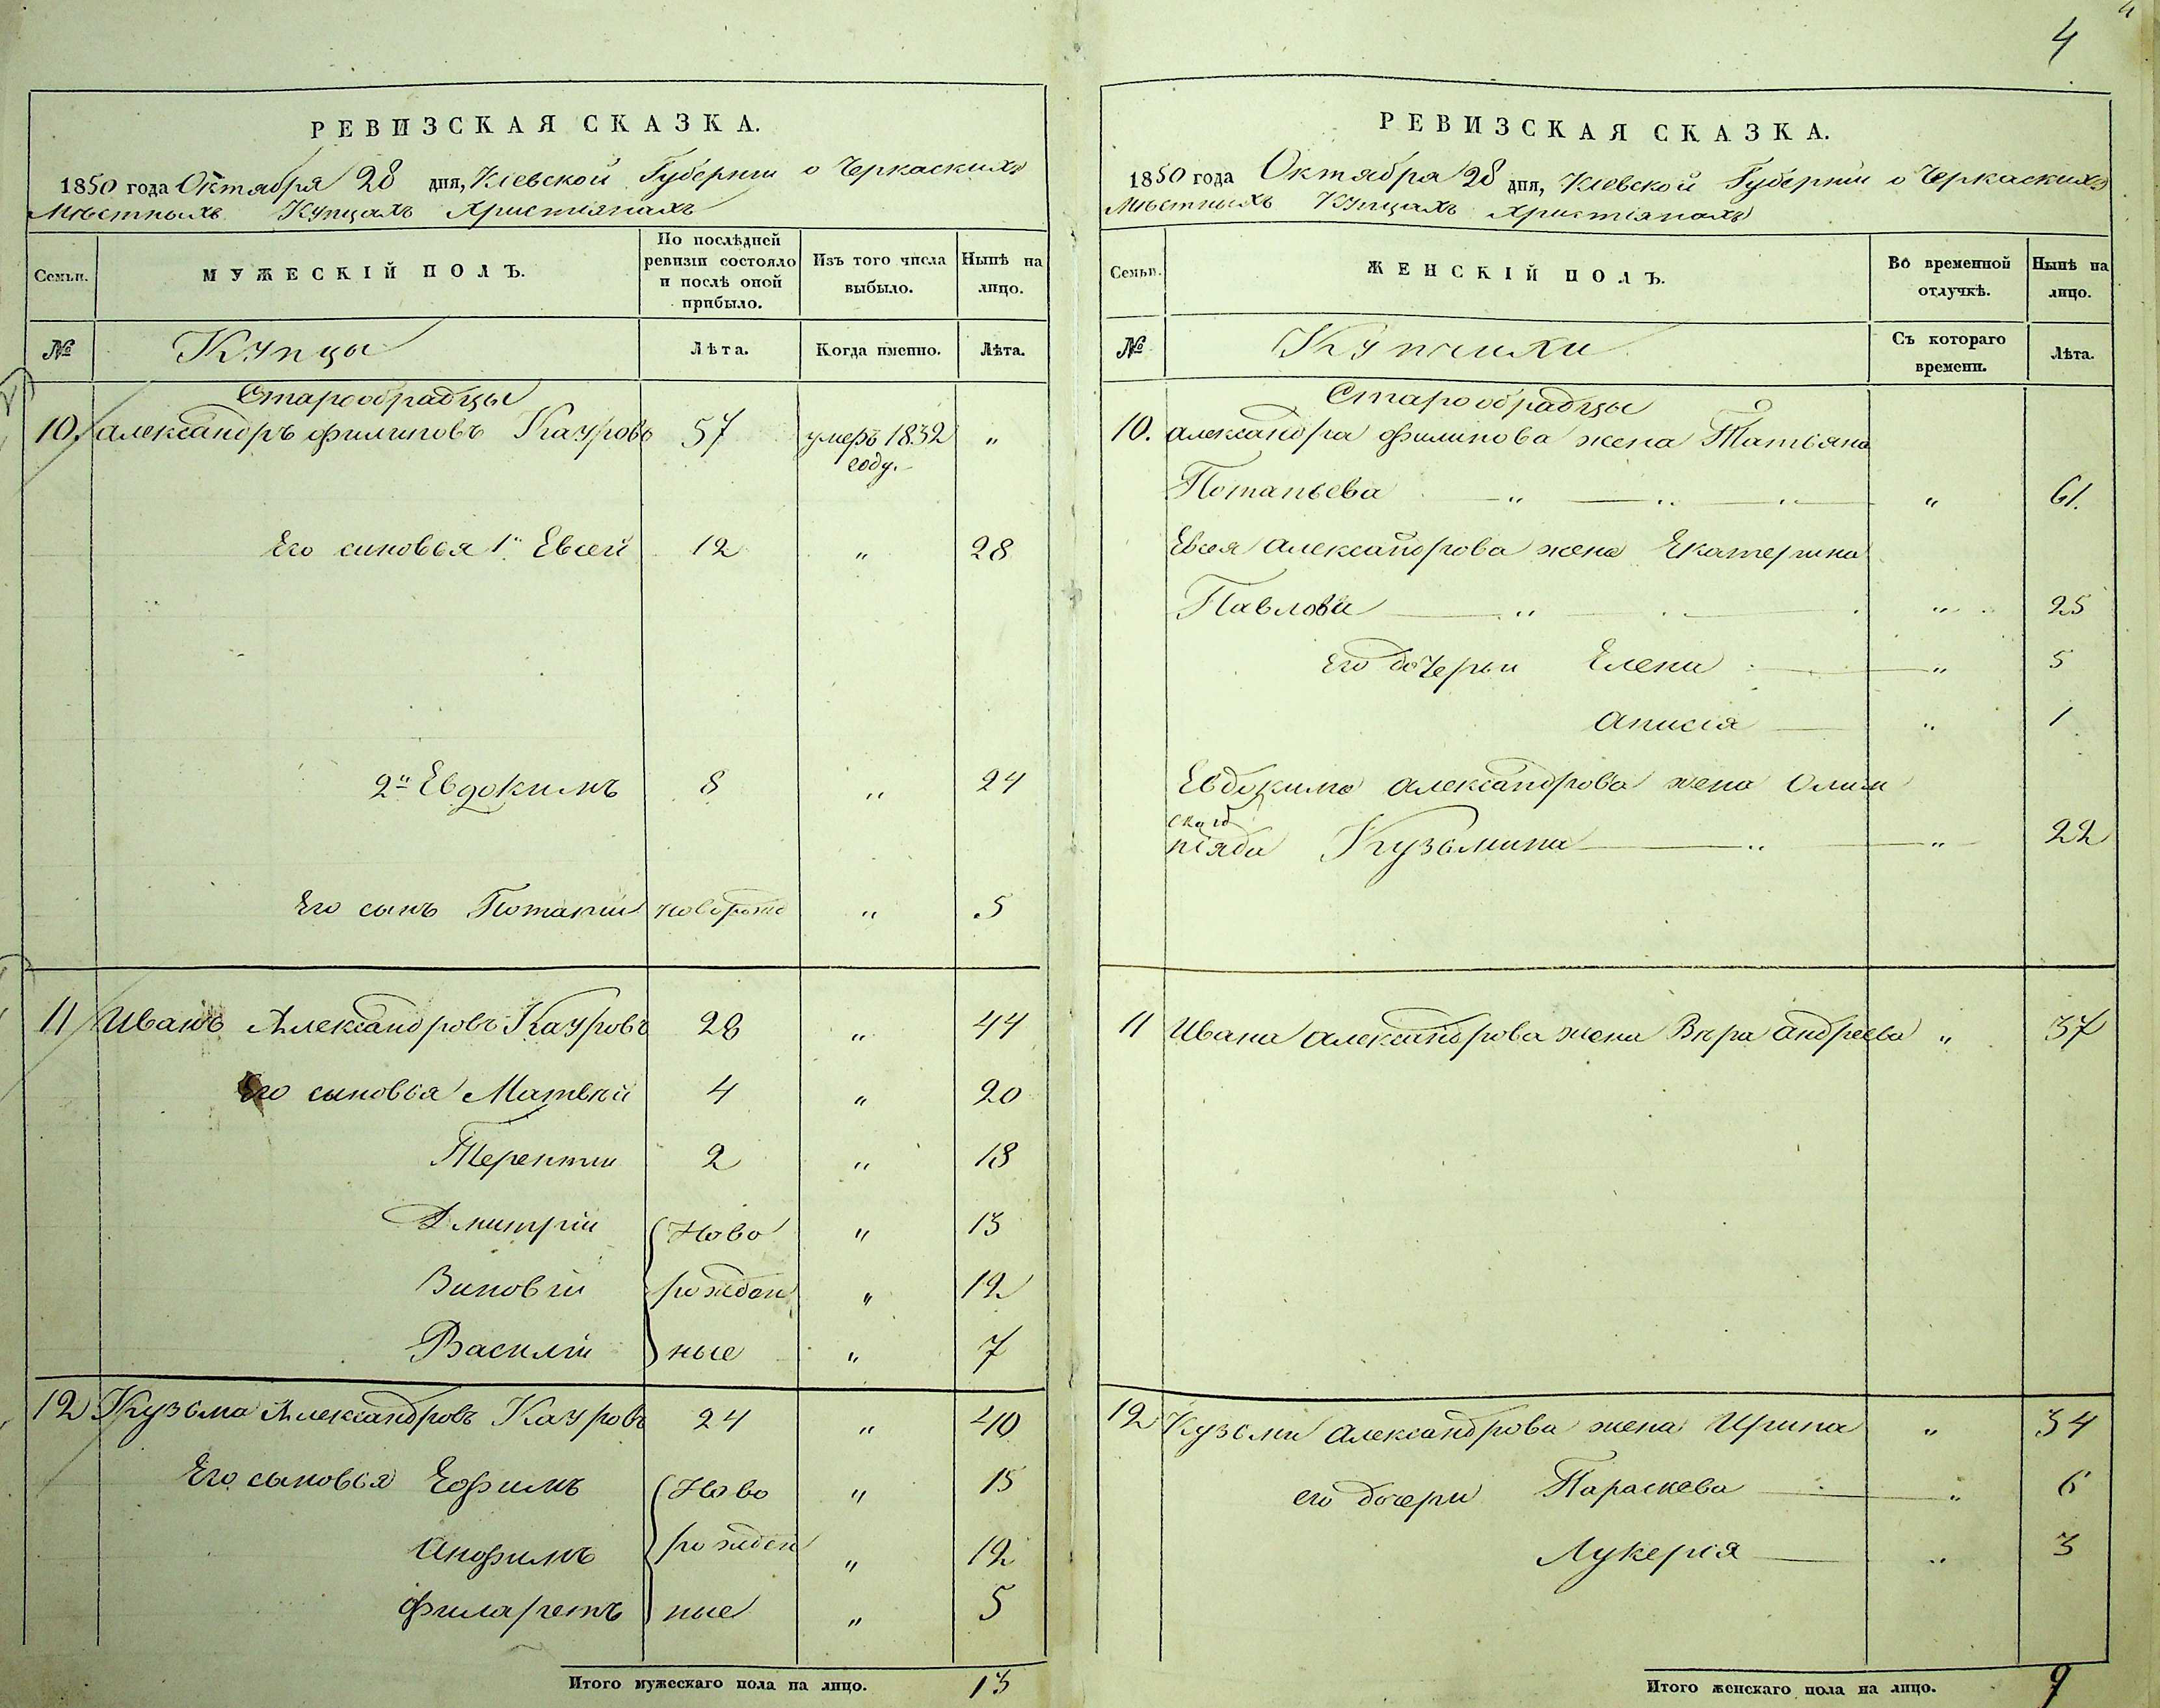 4
РЕВИЗСКАЯ СКАЗКА.
1850 года Октября 28 дня, Кіевской Губерніи о Черкаскихъ
Мѣстныхъ Купцахъ Христіянахъ
Семьи.
МУЖЕСКІЙ ПОЛЪ.
По послѣдней ревизіи состояло и послѣ оной прибыло.
Изъ того числа выбыло.
Нынѣ на лицо.
№
Купцы
Лѣта.
Когда именно.
Лѣта.
Старообрадцы
10. Александръ Филиповъ Кауровъ 57 умеръ 1832 году. "
Его синовья 1й Евсей 12 " 28
2й Евдокимъ 8 " 24
Его сынъ Потапій новорожд " 5
11 Иванъ Александровъ Кауровъ 28 " 44
Его сыновья Матвѣй 4 " 20
Терентій 2 " 18
Дмитрій Ново " 13
Зиновій рожден " 12
Василій ные " 7
12 Кузьма Александровъ Кауровъ 24 " 40
Его сыновья Ефимъ Ново " 15
Анфимъ рожден " 12
Филаретъ ные " 5
Итого мужескаго пола на лицо. 13
РЕВИЗСКАЯ СКАЗКА.
1850 года Октября 28 дня, Кіевской Губерніи о Черкаскихъ
Мѣстныхъ Купцахъ Христіянахъ
Семьи.
ЖЕНСКІЙ ПОЛЪ.
Во временной отлучкѣ.
Нынѣ на лицо.
№
Купчихи
Съ котораго времени.
Лѣта.
Старообрадцы
10. Александра Филипова жена Татьяна
Потапьева " 61.
Евсея Александрова жена Екатерина
Павлова " 25
Его дочерьи Елена " 5
Анисія " 1
Евдокима Александрова жена Олим
піяда Кузьмина " 22
11 Ивана Александрова жена Вѣра Андреева " 37
12 Кузьми Александрова жена Ирина " 34
его дочери Параскева " 6
Лукерія " 3
Итого женскаго пола на лицо. 9